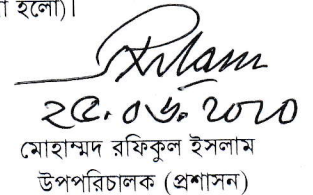 হলো)।
২৫.০৬.২০২০
মোহাম্মদ রফিকুল ইসলাম
উপপরিচালক (প্রশাসন)